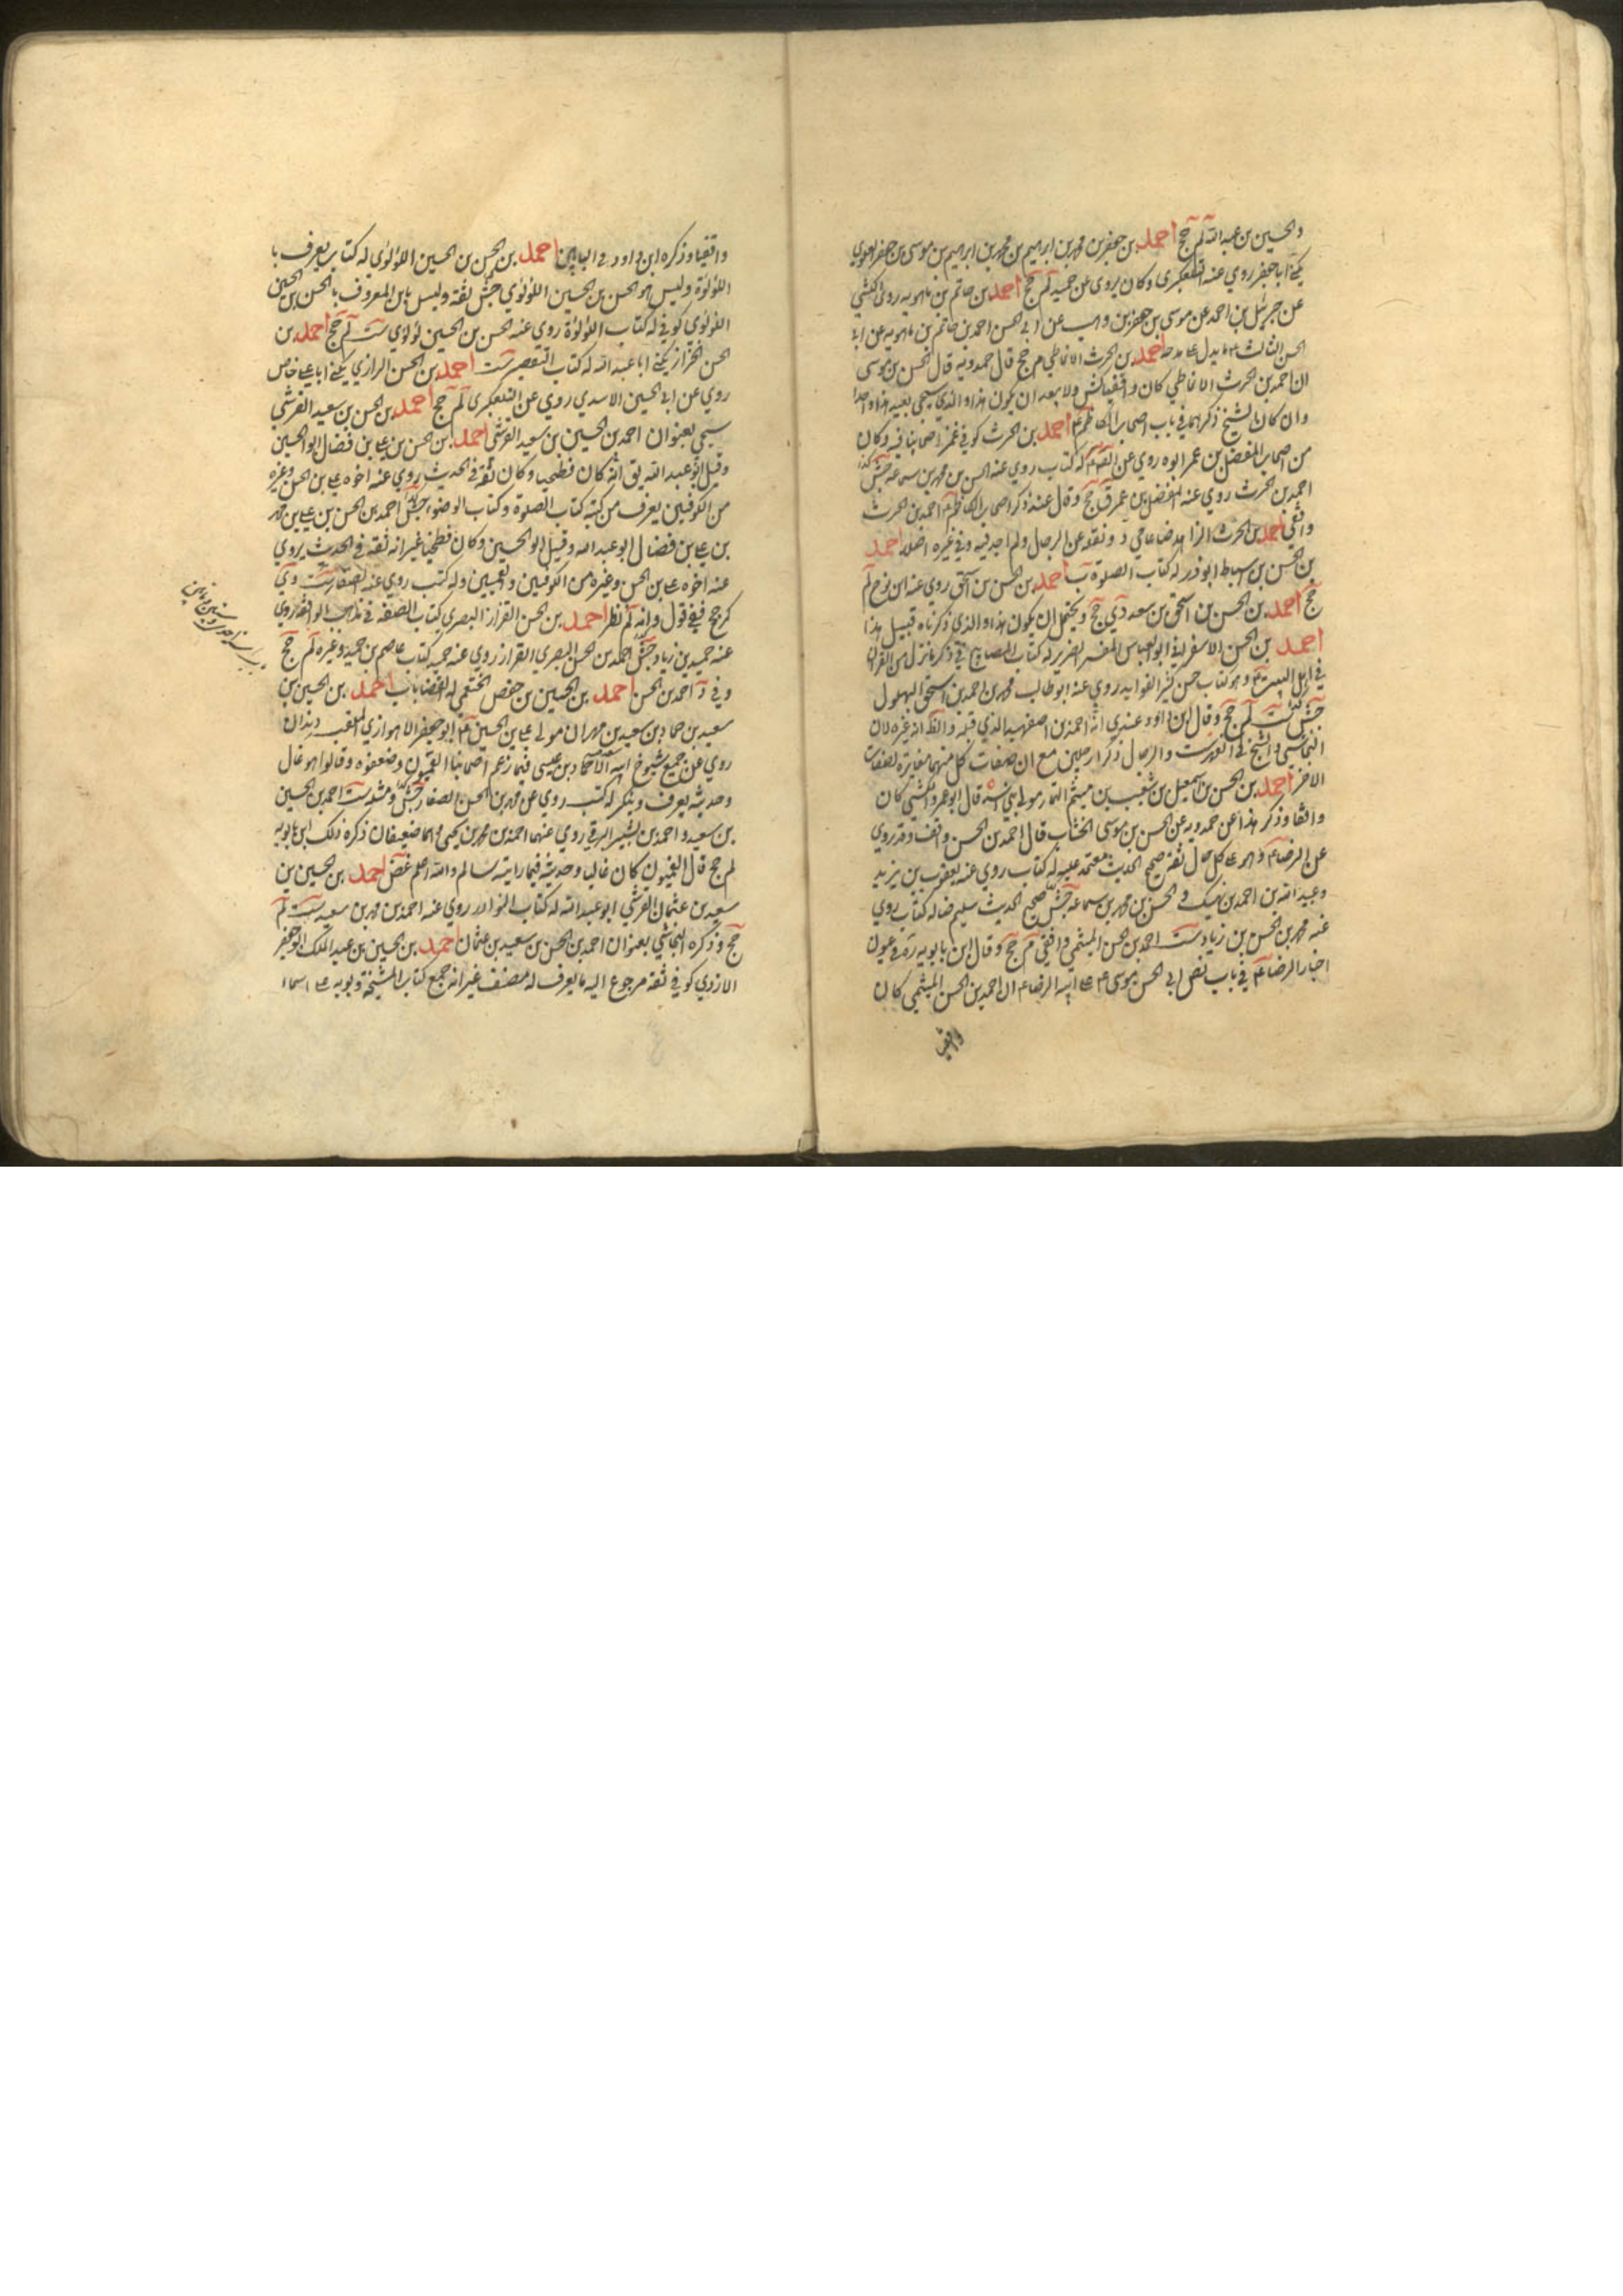 والحسين بن عبد الله لم جخ احمد بن جعفر بن محمد بن ابراهيم بن محمد بن ابراهيم بن موسى بن جعفر العلوي
يكنى ابا جعفر روي عنه التلعكبرى وكان يروى عن حميد لم جخ احمد بن حاتم بن ماهويه روى الكشي
عن جبرئيل بن احمد عن موسى بن جعفر بن وهب عن ابي الحسن احمد بن حاتم بن ماهويه عن ابي
الحسن الثالث ع ما يدل على مدحه احمد بن الحرث الانماطي م جخ قال حمدويه قال الحسن بن موسى
ان احمد بن الحرث الانماطي كان واقفيا كش ولا يبعد ان يكون هذا والذي سيجي بعيد هذا واحدا
وان كان الشيخ ذكرهما في باب اصحاب الكاظم ع احمد بن الحرث كوفي غمز اصحابنا فيه وكان
من اصحاب المفضل بن عمر ابوه روي عن الصم له كتاب روي عنه الحسن بن محمد بن سماعة جش
احمد بن الحرث روي عنه المفضل بن عمر ق جخ وقال عند ذكر اصحاب الكاظم احمد بن الحرث
واقفي احمد بن الحرث الزاهد ضا عامي د ونقله عن الرجال ولم اجد فيه وفي غيره اصلا احمد
بن الحسن بن اسباط ابو ذر له كتاب الصلوة ب احمد بن الحسن بن اسحق روي عنه ابن نوح لم
جخ احمد بن الحسن بن اسحق بن سعد دي جخ ويحتمل ان يكون هذا والذي ذكرناه قبيل هذا
احمد بن الحسن الاسفرايني ابو العباس المفسر الضرير له كتاب المصابيح في ذكر ما نزل من القران
في اهل البيت ع وهو كتاب حسن كثير الفوايد روي عنه ابو طالب محمد بن احمد بن اسحق البهلول
جش ست لم جخ وقال ابن داود وعندي انه احمد بن اصفهبد الذي قبله والظ انه غيره لان
النجاشي والشيخ في الفهرست والرجال ذكرا رجلين مع ان صفات كل منهما مغايرة لصفات
الاخر احمد بن الحسن بن اسمعيل بن شعيب بن ميثم التمار مولى بني اسد قال ابو عمرو الكشي كان
واقفا وذكر هذا عن حمدويه عن الحسن بن موسى الخشاب قال احمد بن الحسن واقف وقد روي
عن الرضا ع وهو على كل حال ثقة صحيح الحديث معتمد عليه له كتاب روي عنه يعقوب بن يزيد
وعبيد الله بن احمد بن نهيك والحسن بن محمد بن سماعة جش صحيح الحديث سليم ضا له كتاب روي
عنه محمد بن الحسن بن زياد ست احمد بن الحسن الميثمي واقفي م جخ وقال ابن بابويه ره في عيون
اخبار الرضا ع في باب نص ابي الحسن موسى ع على ابنه الرضا ع ان احمد بن الحسن الميثمي كان
واقفيا
واقفيا وذكره ابن داود في البابين احمد بن الحسن بن الحسين اللؤلؤى له كتاب يعرف با
اللؤلؤة وليس هو الحسن بن الحسين اللؤلؤي جش ثقة وليس بابن المعروف بالحسن بن الحسين
اللؤلؤي كوفي له كتاب اللؤلؤة روي عنه الحسن بن الحسين لؤلؤي ست لم جخ احمد بن
الحسن الخزاز يكنى ابا عبد الله له كتاب التفسير ست احمد بن الحسن الرازي يكنى ابا علي خاص
روي عن ابي الحسين الاسدي روي عن التلعكبرى لم جخ احمد بن الحسن بن سعيد القرشي
سيجي بعنوان احمد بن الحسين بن سعيد القرشي احمد بن الحسن بن علي بن فضال ابو الحسين
وقيل ابو عبد الله يق انه كان فطحيا وكان ثقة في الحديث روي عنه اخوه علي بن الحسن وغيره
من الكوفيين يعرف من كتبه كتاب الصلوة وكتاب الوضوء جش احمد بن الحسن بن علي بن محمد
بن علي بن فضال ابو عبد الله وقيل ابو الحسين وكان فطحيا غير انه ثقة في الحديث يروي
عنه اخوه علي بن الحسن وغيره من الكوفيين والقميين وله كتب روي عنه الصفار ست دي
كر جخ ففي قول د انه لم نظر احمد بن الحسن القزاز البصري كتاب الصفة في مذاهب الواقفة روي
عنه حميد بن زياد جش احمد بن الحسن البصري القزاز روي عنه حميد كتاب عاصم بن حميد وغيره لم جخ
وفي د احمد بن الحسن احمد بن الحسين بن حفص الخثعمي له القضايا ب احمد بن الحسين بن
سعيد بن حماد بن سعيد بن مهران مولى علي بن الحسين ع ابو جعفر الاهوازي الملقب دندان
روي عن جميع شيوخ ابيه الا حماد بن عيسى فيما زعم اصحابنا القميون وضعفوه وقالوا هو غال
وحديثه يعرف وينكر له كتب روي عن محمد بن الحسن الصفار جش ومثله ست احمد بن الحسين
بن سعيد واحمد بن بشير البرقي روي عنهما احمد بن محمد بن يحيى وهما ضعيفان ذكره ذلك ابن بابويه
لم جخ قال القميون كان غاليا وحديثه فيما رايته سالم والله اعلم غض احمد بن الحسين بن
سعيد بن عثمان القرشي ابو عبد الله له كتاب النوادر روي عنه احمد بن محمد بن سعيد ست لم
جخ وذكره النجاشي بعنوان احمد بن الحسن بن سعيد بن عثمان احمد بن الحسين بن عبد الملك ابو جعفر
الازدي كوفي ثقة مرجوع اليه ما يعرف له مصنف غير انه جمع كتاب المشيخة وبوبه على اسماء